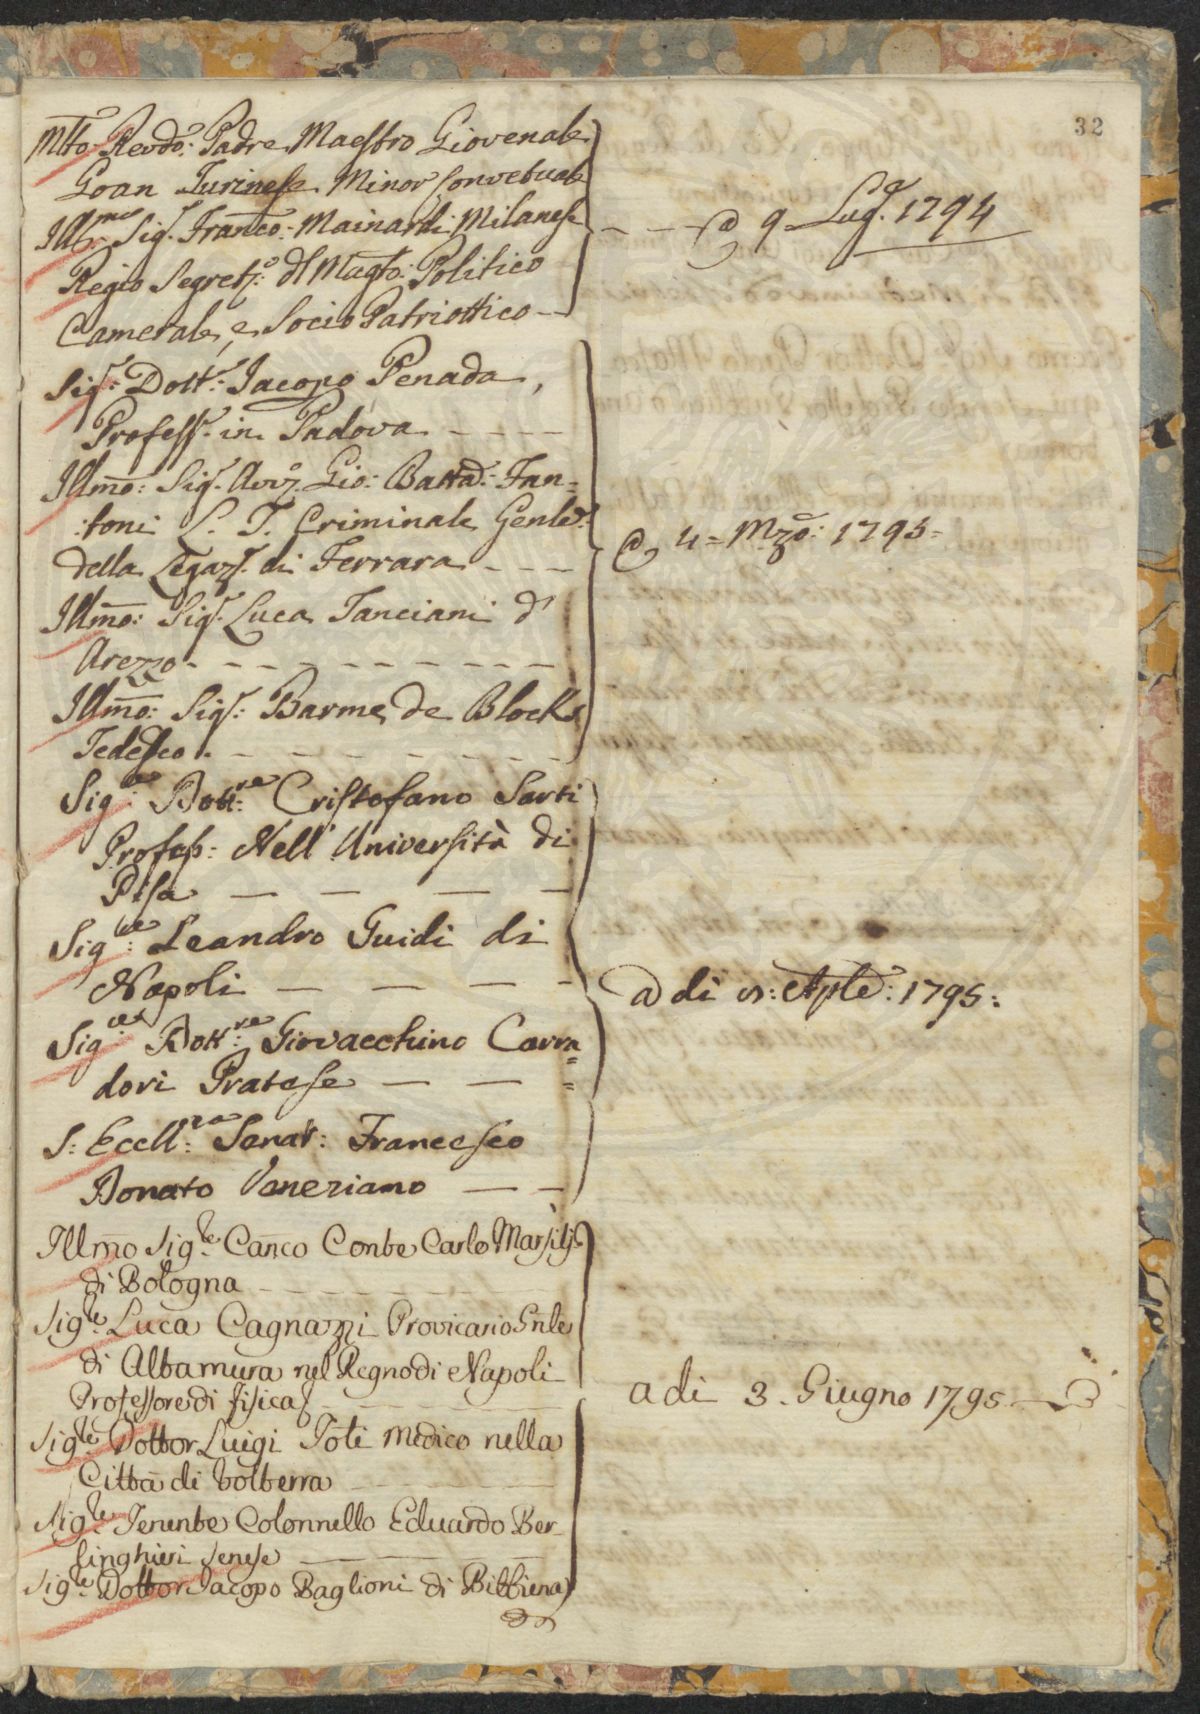 32
Mlto Revdo: Padre Maestro Giovenale
Goan Turinese Minor Convetuale
Illmo Sigr. Franco: Mainardi Milanese
Regio Segreto: dl Magto: Politico
Camerale, e Socio Patriottico
@ 9 Lugo. 1794
Sigr: Dottr: Iacopo Penada,
Profess. in Padova
Illmo: Sigr. Avvo. Gio: Batta: Fan=
:toni L. T. Criminale Genle:
della Legazne. di Ferrara
Illmo: Sigr. Luca Tanciani d'
Arezzo
Illmo: Sigr: Barme de Blocks
Tedesco
@ 4= Mzo: 1795=
Sigre: Dottre: Cristofano Sarti
Profess: Nell' Università di
Pisa
Sigre: Leandro Guidi di
Napoli
Sigre: Dottre: Giovacchino Carra=
dori Pratese
S: Eccllza: Senatr: Francesco
Donato Veneziano
a di : Aple: 1795:
Illmo Sigre. Canco Conte Carlo Marsilj
di Bologna
Sigre. Luca Cagnazzi Provicario Gnle
di Altamura nel Regno di Napoli
Professore di fisica
Sigre. Dottor Luigi Toti Medico nella
Città di Volterra
Sigre. Tenente Colonnello Eduardo Ber_
linghieri Senese
Sigre. Dottor Jacopo Baglioni di Bibbiena
a di 3. Giugno 1795